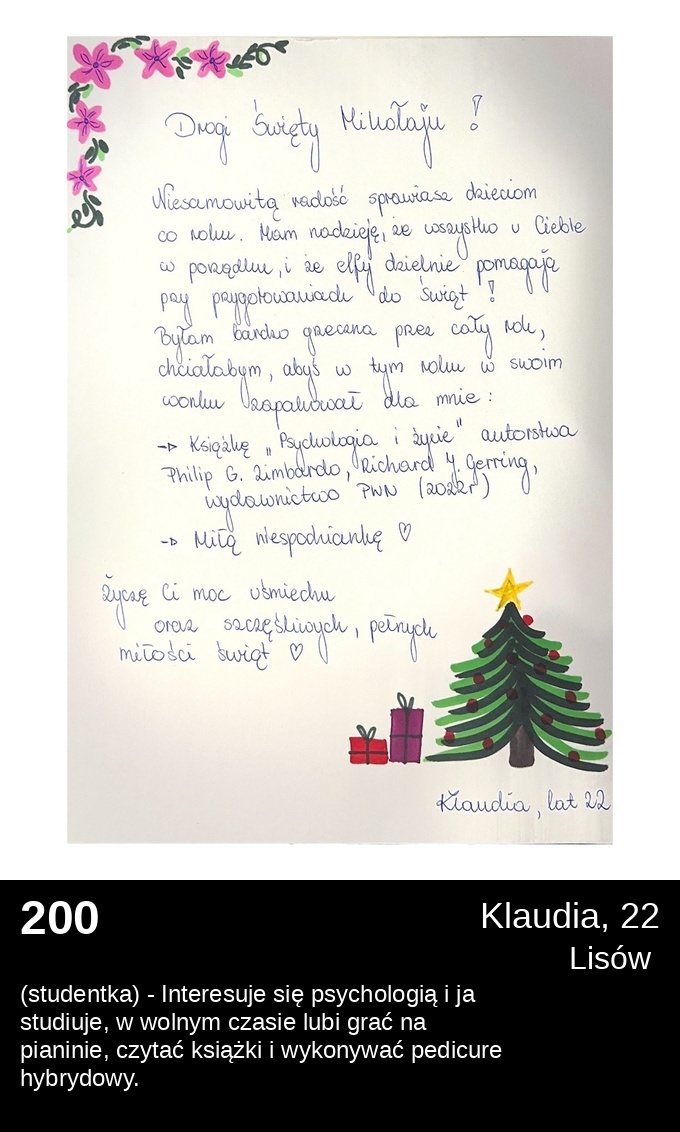 Drogi Święty Mikołaju !
Niesamowitą radość sprawiasz dzieciom
co roku. Mam nadzieję, że wszystko u Ciebie
w porządku, i że elfy dzielnie pomagają
przy przygotowaniach do świąt !
Byłam bardzo grzeczna przez cały rok,
chciałabym, abyś w tym roku w swoim
worku zapakował dla mnie :
→ Książkę „Psychologia i życie" autorstwa
Philip G. Zimbardo, Richard J. Gerring,
wydawnictwo PWN (2022r)
→ Miłą niespodziankę ♡
Życzę Ci moc uśmiechu
oraz szczęśliwych, pełnych
miłości świąt ♡
Klaudia, lat 22
200
Klaudia, 22
Lisów
(studentka) - Interesuje się psychologią i ja
studiuje, w wolnym czasie lubi grać na
pianinie, czytać książki i wykonywać pedicure
hybrydowy.